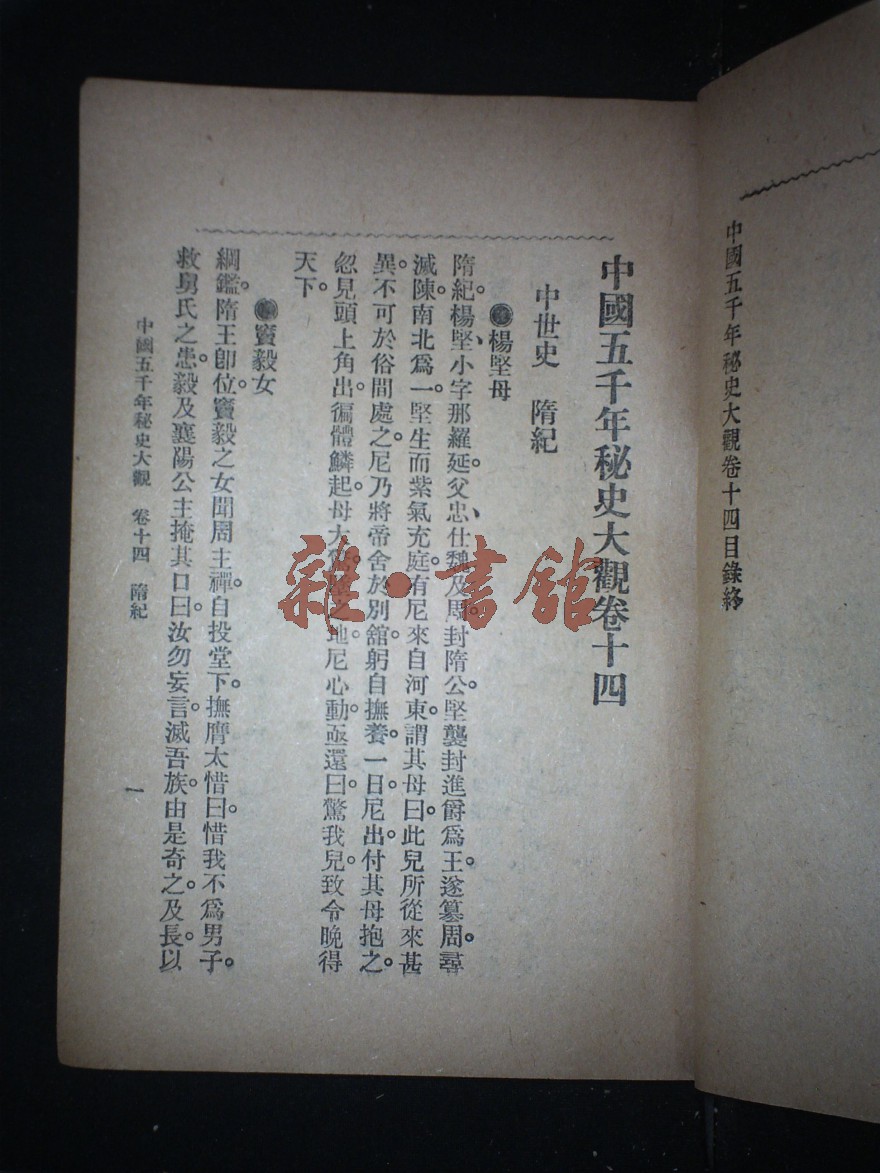 中國五千年秘史大觀卷十四目錄終
中國五千年秘史大觀卷十四
中世史 隋紀
楊堅母
隋紀。楊堅、小字那羅延。父忠、仕魏及周。封隋公。堅襲封進爵爲王。遂篡周。尋
滅陳南北爲一。堅生而紫氣充庭。有尼來自河東。謂其母曰。此兒所從來甚
異。不可於俗間處之。尼乃將帝舍於別舘。躬自撫養。一日尼出。付其母抱之。
忽見頭上角出。徧體鱗起。母大地。尼心動。亟還曰。驚我兒。致令晚得
天下。
竇毅女
綱鑑。隋王卽位。竇毅之女聞周主禪。自投堂下。撫膺太惜曰。惜我不爲男子。
救舅氏之患。毅及襄陽公主掩其口曰。汝勿妄言。滅吾族。由是奇之。及長。以
中國五千年秘史大觀 卷十四 隋紀
一
雜·書舘